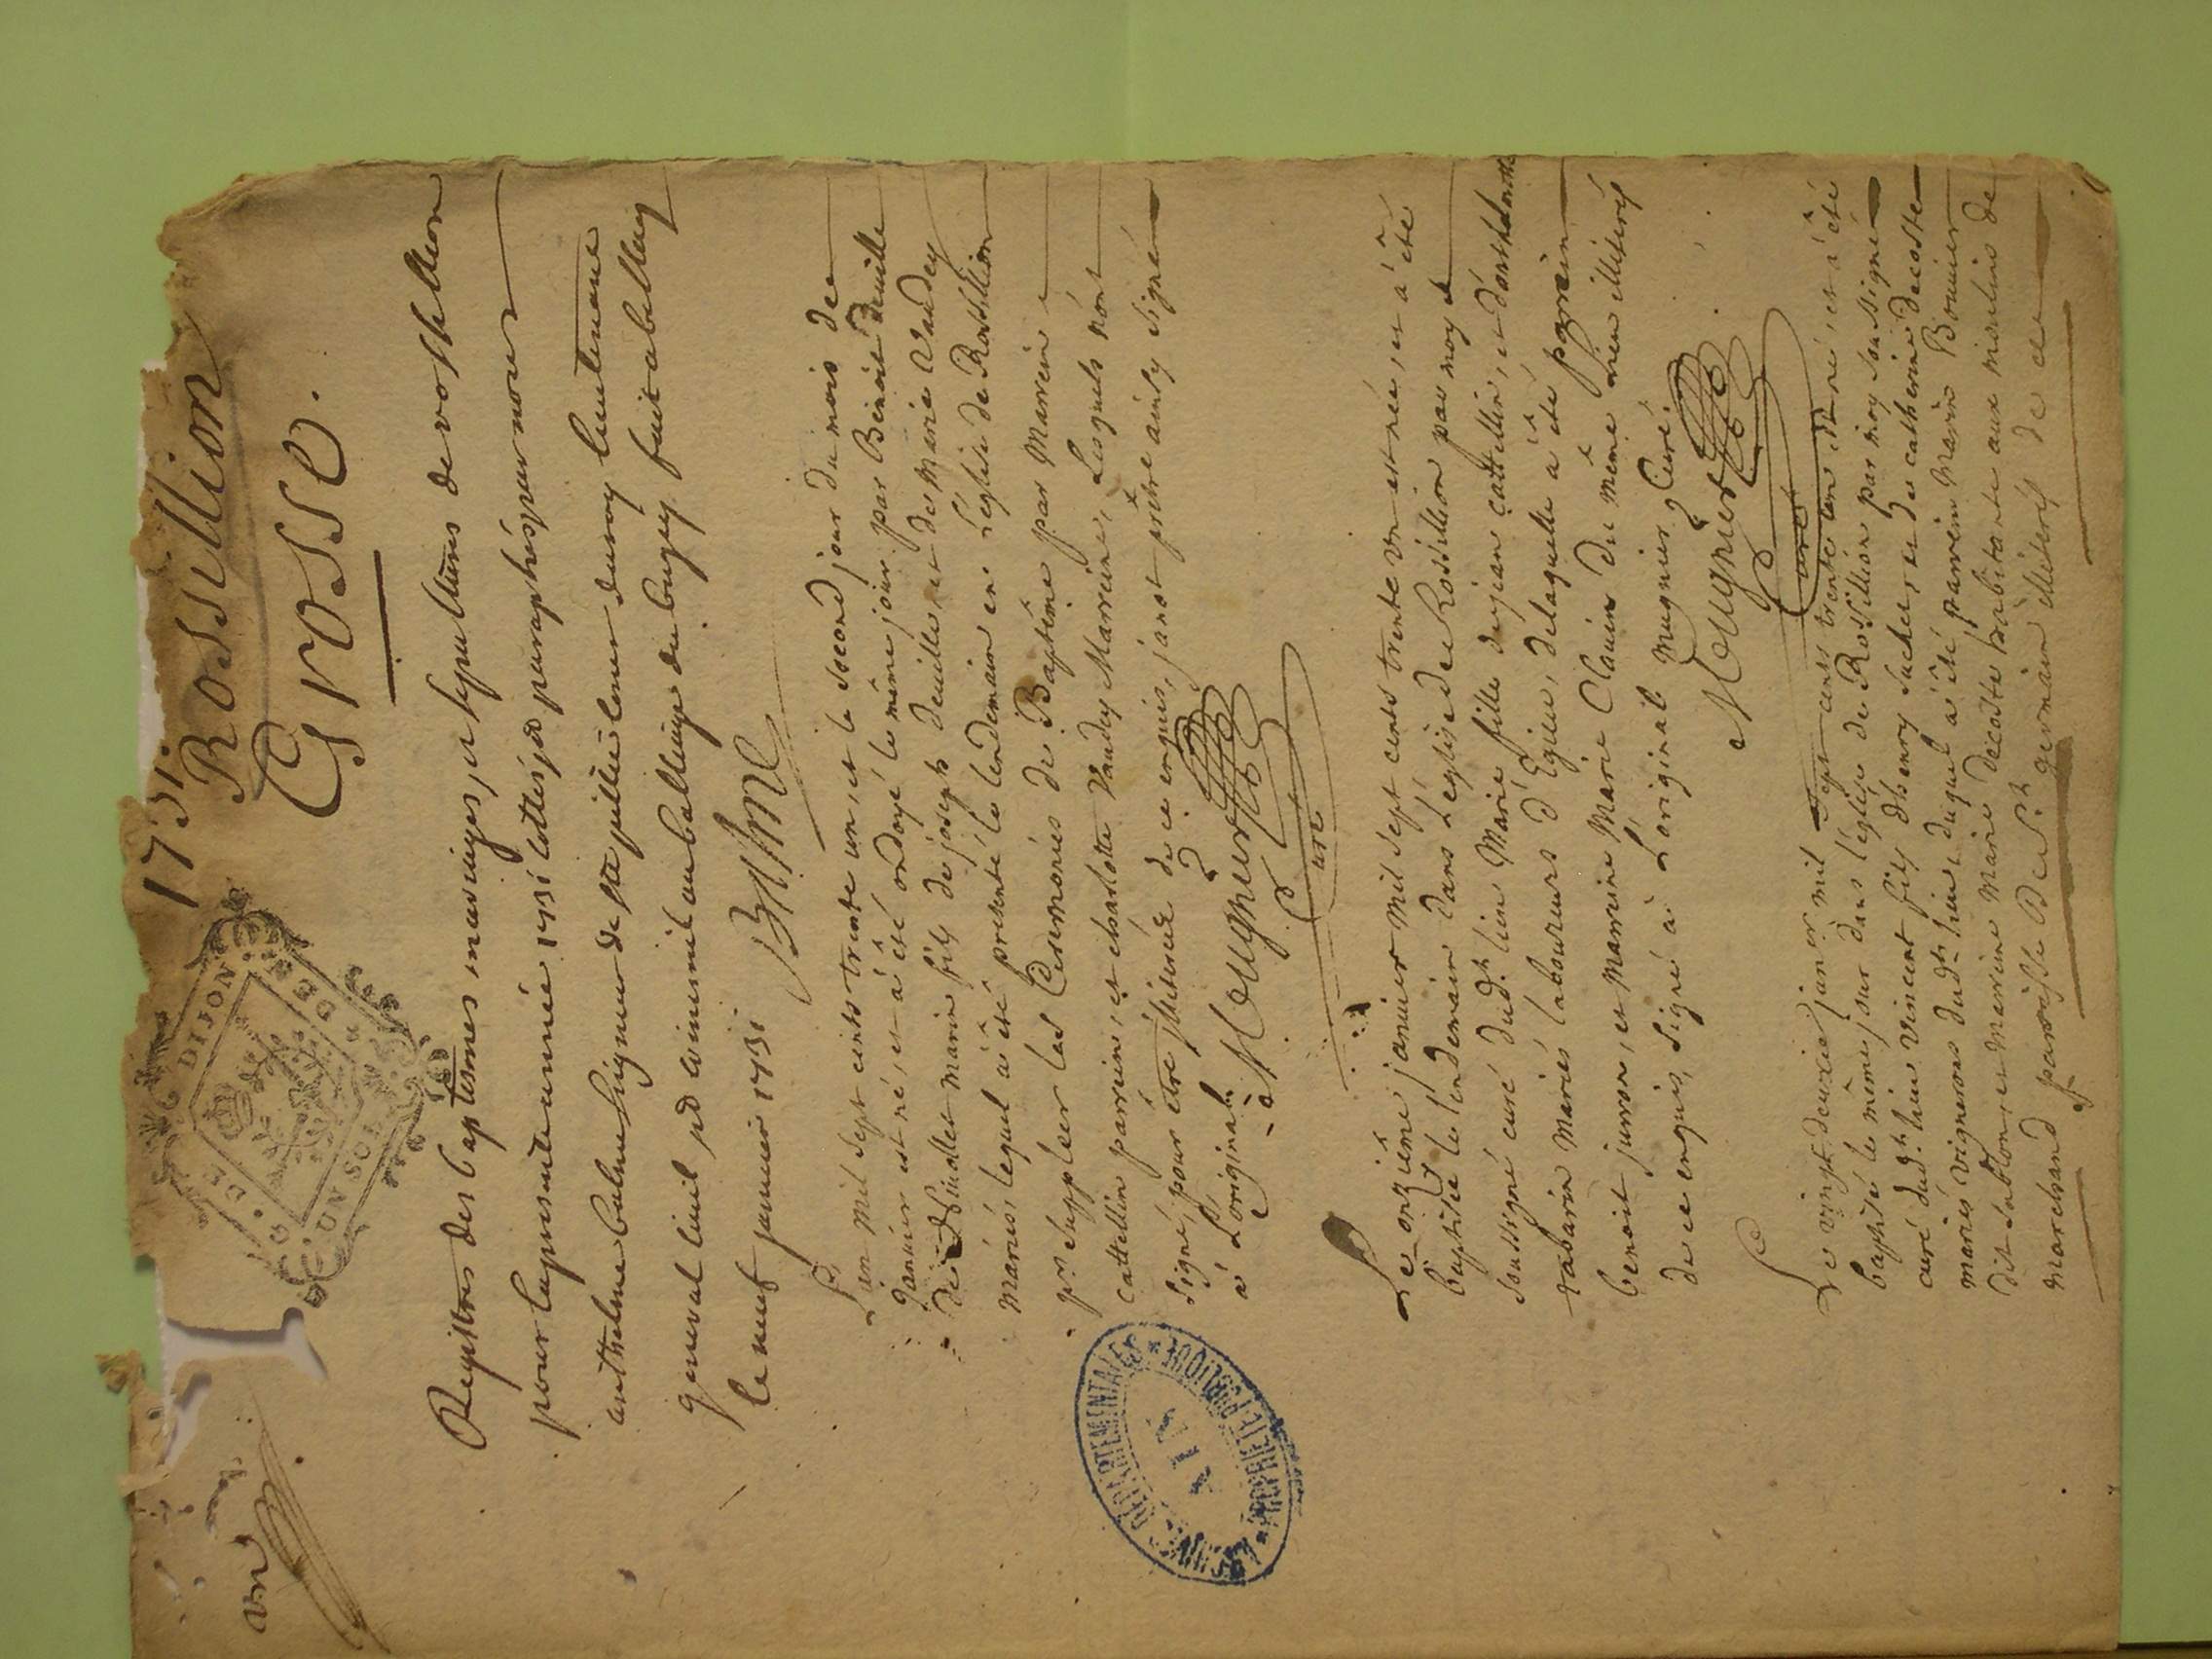 1731.
Rossillion
Grosse
un
DE DIJON
UN SOL
Registres des baptesmes mariages, et sepultures de rossillion
pour la presente année 1731 cottés et paraphés par nous
anthelme balme seigneur de ste jullie conser du roy lieutenant
general civil et criminel au bailliage de bugey fait a belley
le neuf janvier 1731 Balme
L'an mil sept cents trente un, et le second jour du mois de
Janvier est né, et a été ondoyé le même jour par Benoit deuille
de marin fils de joseph deuille, et de Marie Vaudey
mariés, lequel a été presenté le lendemain en L'église de Rossillion
pr. suppleer les Ceremonies de Baptême par Marcin
cattellin parrein, et charlotte Vaudey Marreine, Lesquels n'ont
signé, pour être illiterés de ce enquis, janot prêtre ainsy signé
à L'original.
Mougnier
curé
Le onzième janvier mil sept cents trente un est née, et a été
baptisée le lendemain dans L'église de Rossillion par moy
soussigné curé dud. lieu Marie fille de jean cattellin, et d'
rabarin mariés laboureurs d'Egieu, delaquelle a été parrein
benoit juvron, et Marreine Marie Clauin du même lieu illiterés
de ce enquis, signé à L'original Mugnier Curé
Mougnier
curé
Le vingt deuxie janer mil sept cents trente un est né, et a été
baptisé le même jour dans l'église de Rossillion par moy soussigné
curé dud. lieu vincent fils d'henry suchet, et de catherine decoste
mariés vignerons dud. lieu duquel a été parrein Marin Bouvier
dit sablon, et Marreine Marie decoste habitante aux moulins de
marchand parroisse De St. germain illiterés de ce
ARCHIVES DEPARTEMENTALES
AIN
PROPRIETE PUBLIQUE